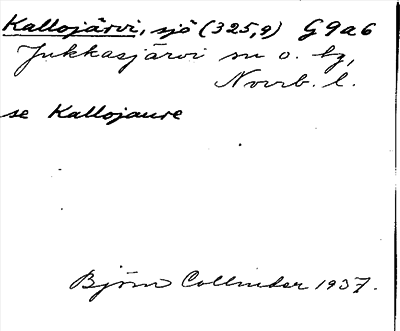 Kallojärvi, sjö (325,9) G9a6
Jukkasjärvi sn o. tg,
Norrb. l.
se Kallojaure
Björn Collinder 1937.